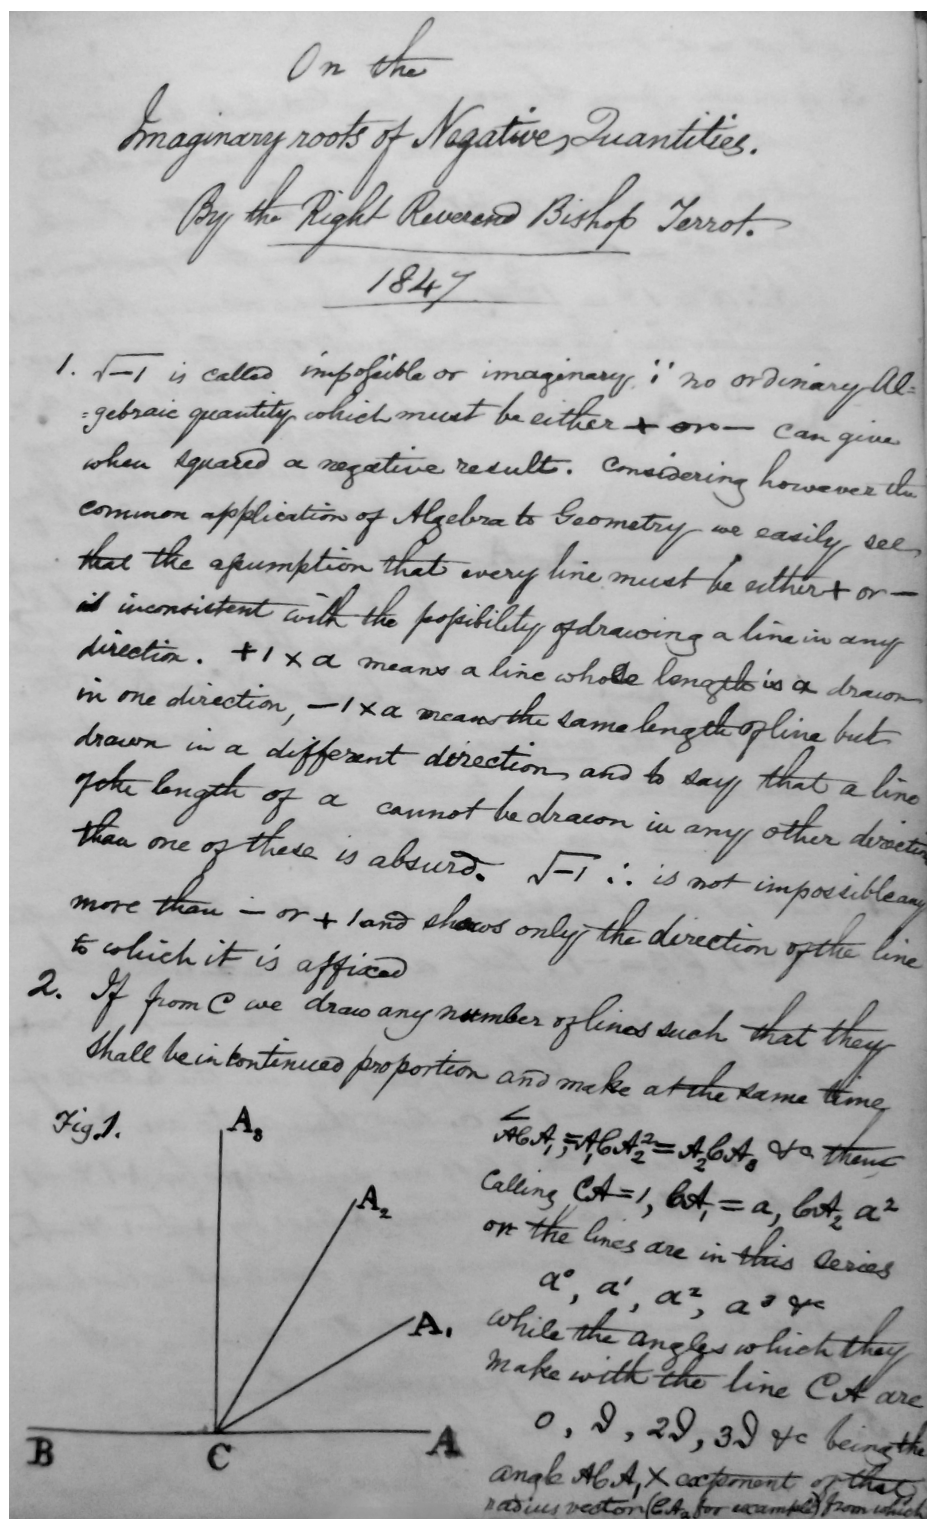 On the
Imaginary roots of Negative Quantities.
By the Right Reverend Bishop Terrot.
1847
1. √-1 is called impossible or imaginary ∵ no ordinary Al=
=gebraic quantity which must be either + or - can give
when squared a negative result. Considering however the
common application of Algebra to Geometry we easily see
that the assumption that every line must be either + or -
is inconsistent with the possibility of drawing a line in any
direction. +1 × a means a line whose length is a drawn
in one direction, -1 × a means the same length of line but
drawn in a different direction and to say that a line
of the length of a cannot be drawn in any other direction
than one of these is absurd. √-1 ∴ is not impossible any
more than - or + 1 and shows only the direction of the line
to which it is affixed
2. If from C we draw any number of lines such that they
shall be in continued proportion and make at the same time
Fig. 1.
A₃
A₂
A₁
B
C
A
∠ACA₁ = A₁CA₂ = A₂CA₃ &c then
calling CA = 1, CA₁ = a, CA₂ a²
or the lines are in this series
a⁰, a¹, a², a³ &c
while the angles which they
make with the line CA are
0, ϑ, 2ϑ, 3ϑ &c being the
angle ACA₁ × exponent of that
radius vector (CA₂ for example) from which